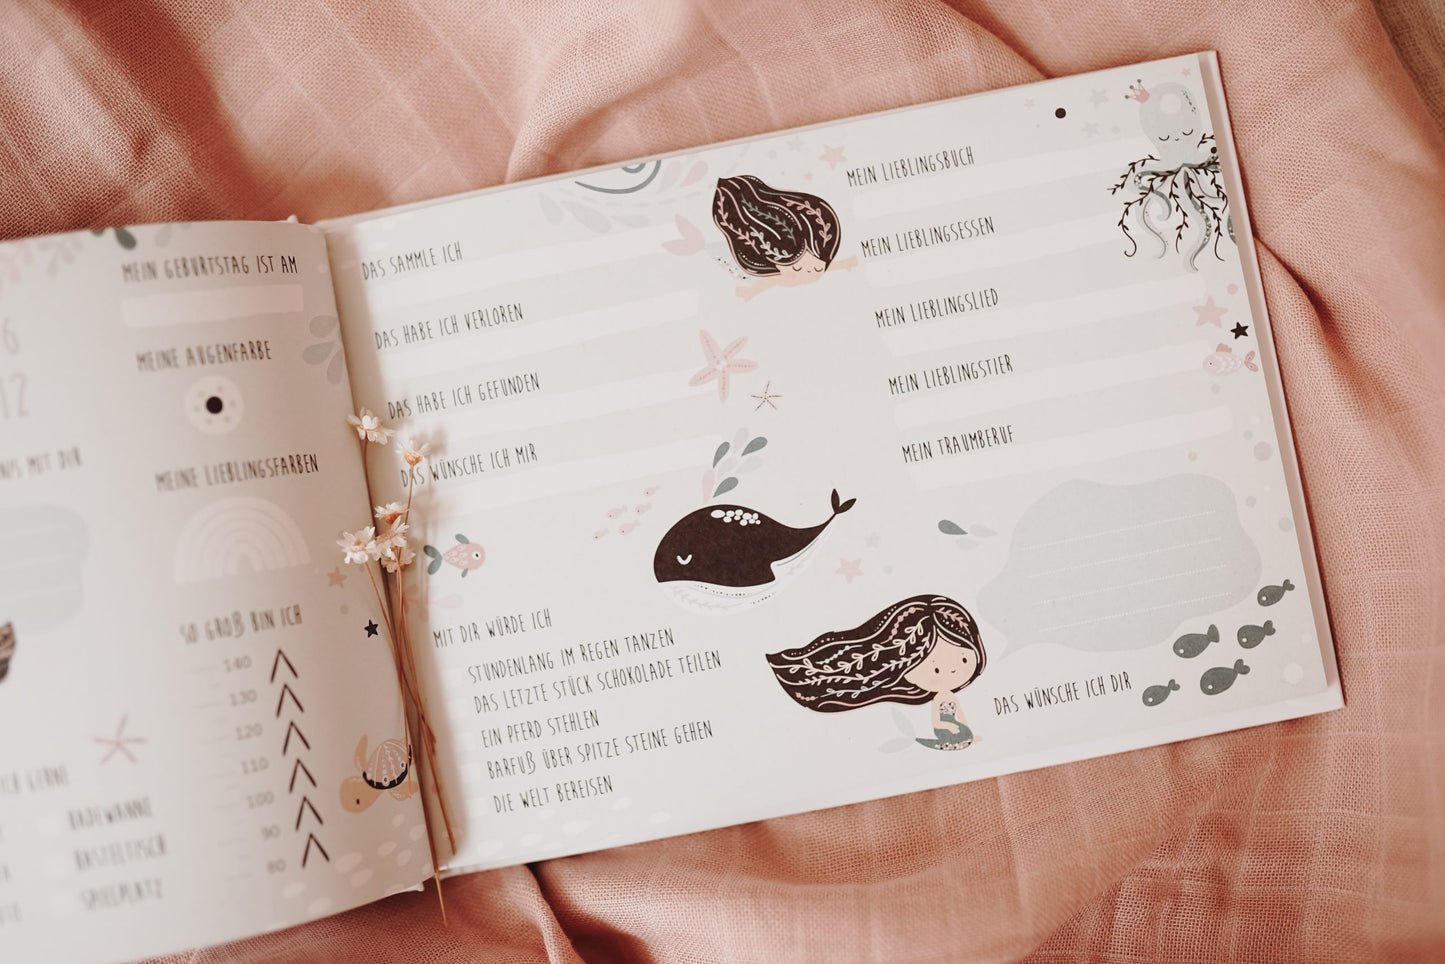 6
12
NIS MIT DIR
MEIN GEBURTSTAG IST AM
MEINE AUGENFARBE
MEINE LIEBLINGSFARBEN
SO GROß BIN ICH
140
130
120
110
100
90
80
ICH GERNE
BADEWANNE
BASTELTISCH
SPIELPLATZ
DAS SAMMLE ICH
DAS HABE ICH VERLOREN
DAS HABE ICH GEFUNDEN
DAS WÜNSCHE ICH MIR
MIT DIR WÜRDE ICH
STUNDENLANG IM REGEN TANZEN
DAS LETZTE STÜCK SCHOKOLADE TEILEN
EIN PFERD STEHLEN
BARFUß ÜBER SPITZE STEINE GEHEN
DIE WELT BEREISEN
MEIN LIEBLINGSBUCH
MEIN LIEBLINGSESSEN
MEIN LIEBLINGSLIED
MEIN LIEBLINGSTIER
MEIN TRAUMBERUF
DAS WÜNSCHE ICH DIR